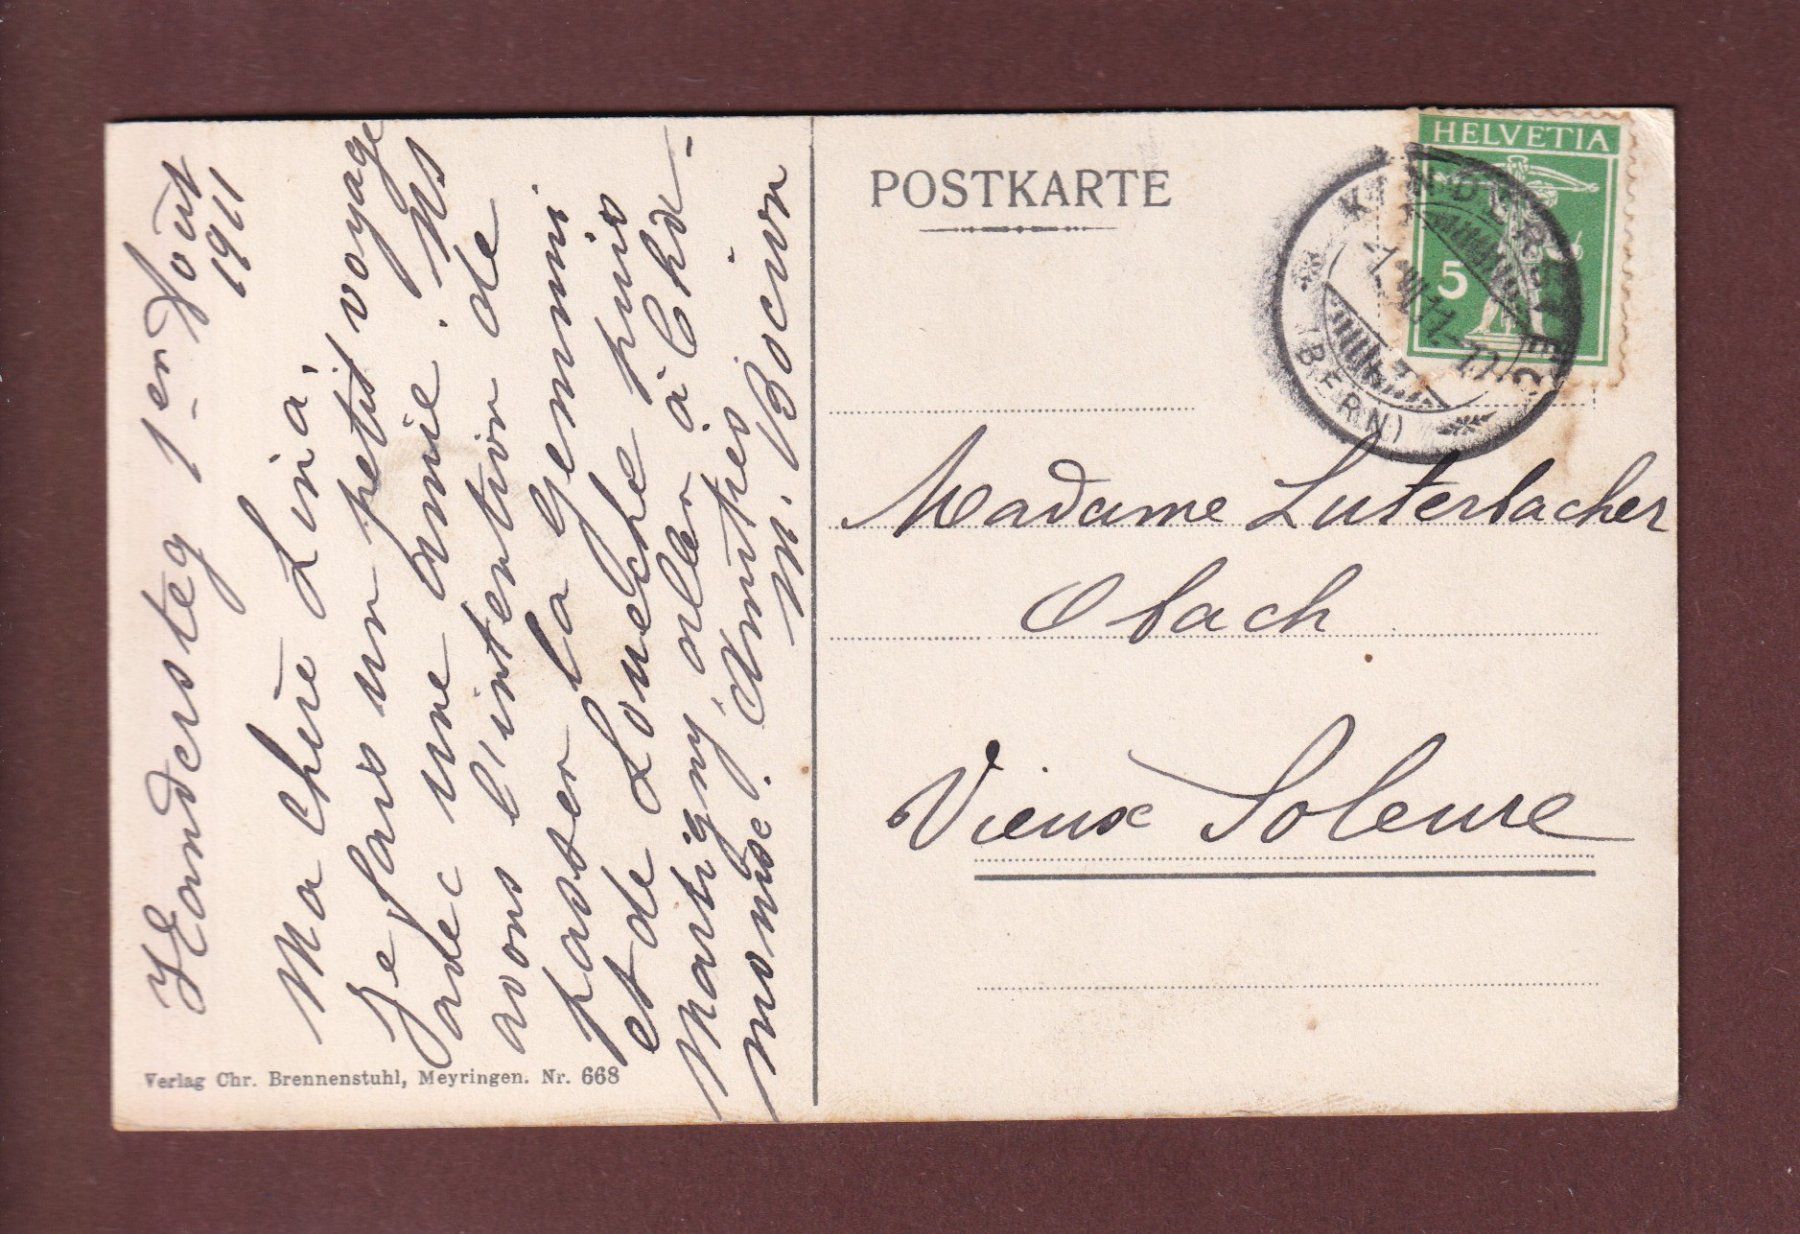 Kandersteg 1er Août
1911
Ma chère Lina,
Je fais un petit voyage
avec une amie. Ns
avons l'intention de
passer la Gemmi
et de Louèche puis
Martigny, aller à Cha-
monise. Amitiés
M. Bocion
Verlag Chr. Brennenstuhl, Meyringen. Nr. 668
POSTKARTE
HELVETIA
5
KANDERSTEG
(BERN)
Madame Luterbacher
Obach
Vieux Soleure